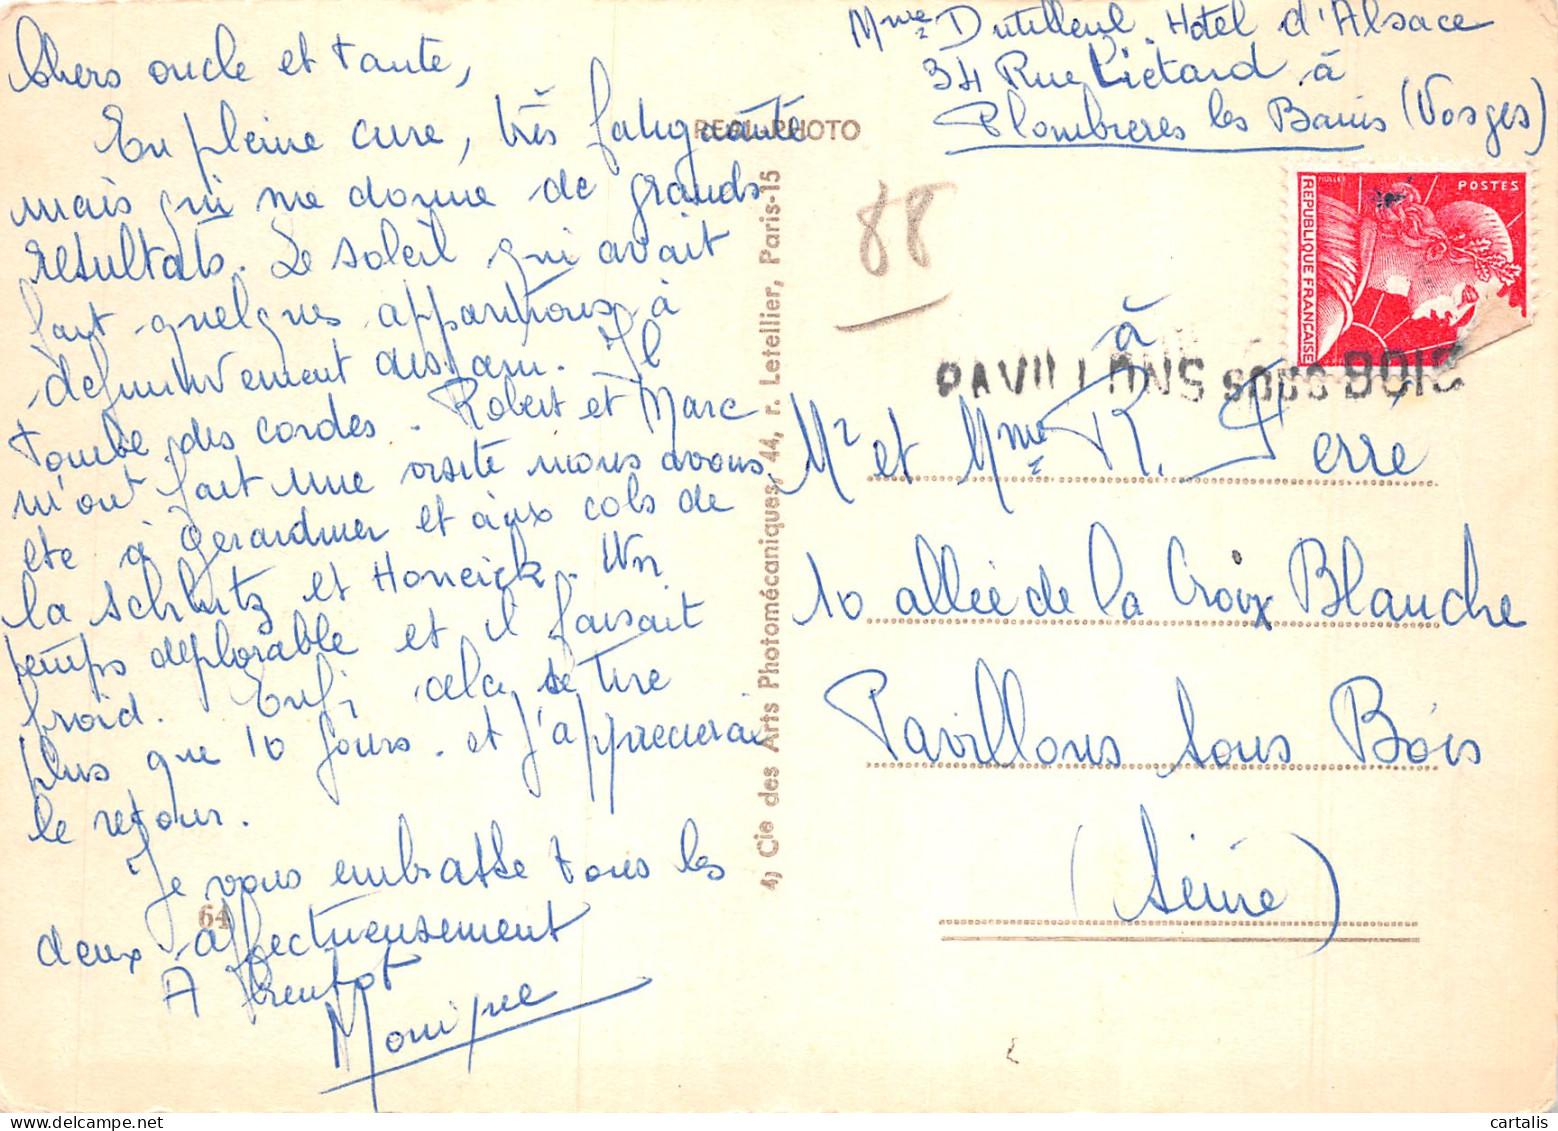 Chers oncle et tante,
En pleine cure, très fatigante
mais qui me donne de grands
résultats. Le soleil qui avait
fait quelques apparitions à
définitivement disparu. Il
tombe des cordes. Robert et Marc
m'ont fait une visite nous avons
été à Gérardmer et aux cols de
la Schlutz et Honeick. Un
temps déplorable et il faisait
froid. Enfi, cela se tire
plus que 10 jours. et j'apprécierai
le retour.
Je vous embrasse tous les
deux affectueusement
A bientot
Monique
64
REAL-PHOTO
4) Cie des Arts Photomécaniques, 44, r. Letellier, Paris-15
Mme Dutilleul. Hotel d'Alsace
34 Rue Liétard à
Plombières les Bains (Vosges)
88
REPUBLIQUE FRANÇAISE
POSTES
MULLER
PAVILLONS SOUS BOIS
à
Mr et Mme R. Ferré
10 allée de la Croix Blanche
Pavillons sous Bois
(Seine)